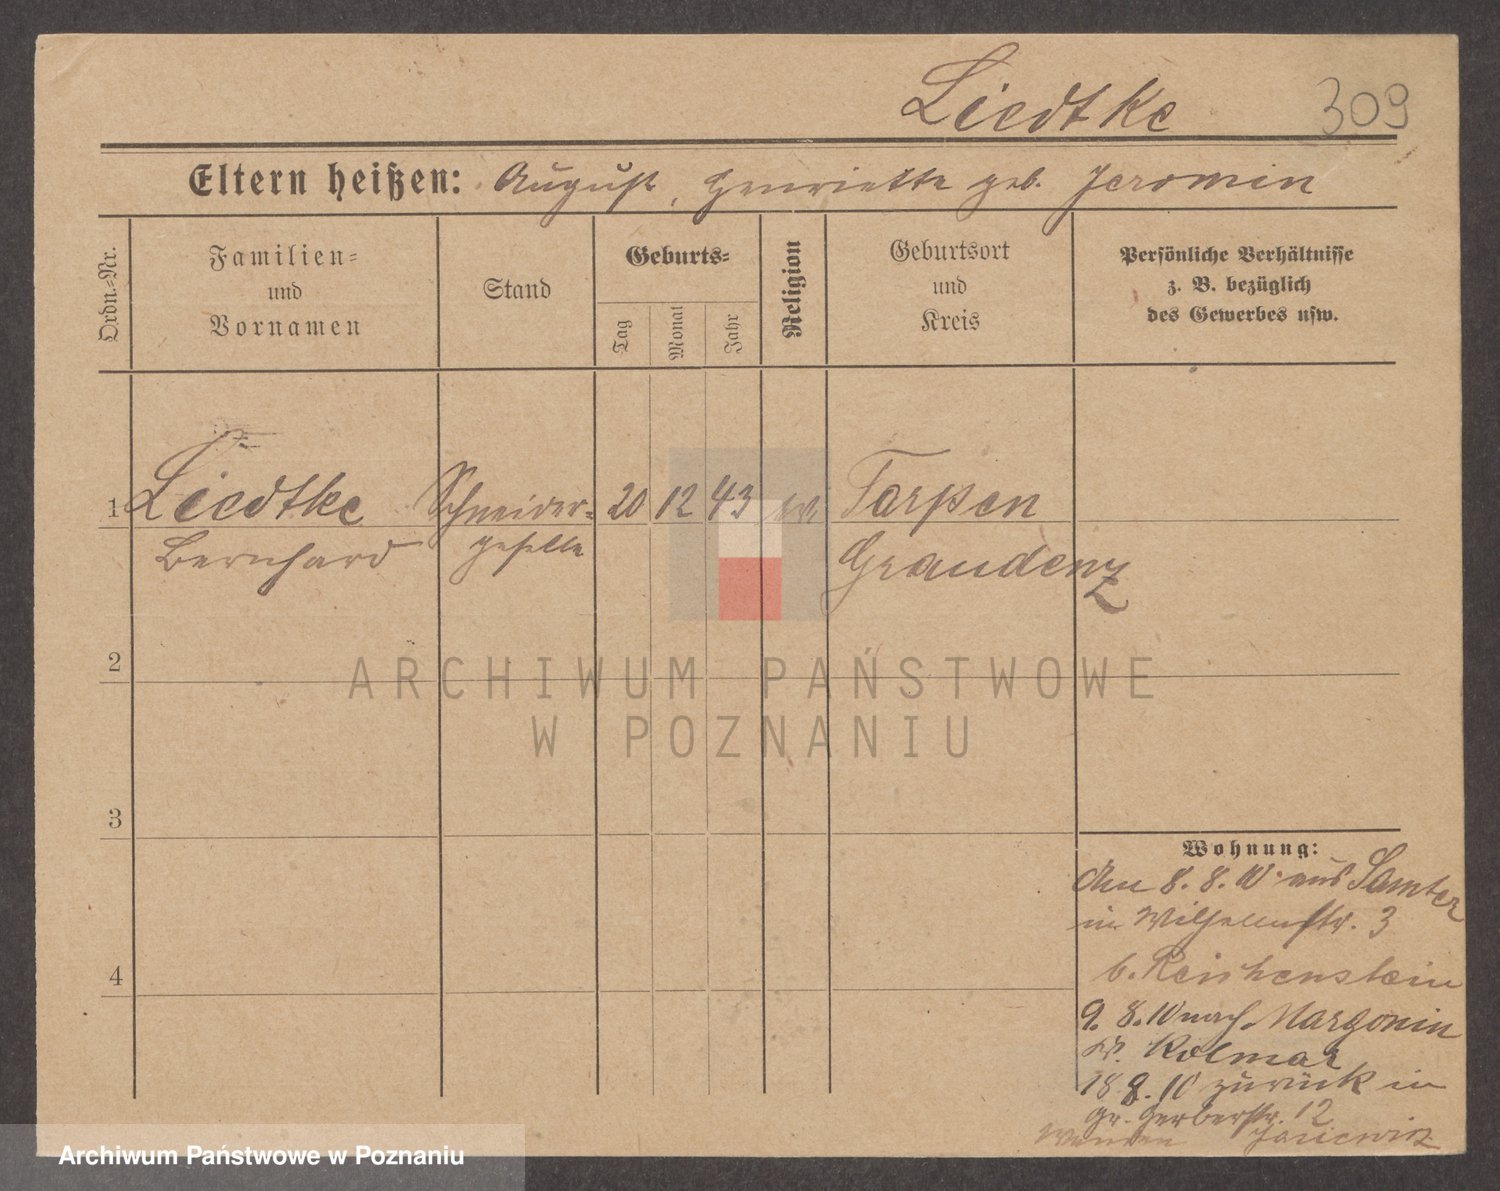 Liedtke 309
Eltern heißen: August, Henriette geb. Jeromin
Ordn.-Nr.
Familien-
und
Vornamen
Stand
Geburts-
Tag
Monat
Jahr
Religion
Geburtsort
und
Kreis
Persönliche Verhältnisse
z. B. bezüglich
des Gewerbes usw.
1 Liedtke Schneider- 20 12 43 ev. Tarpen
Bernhard geselle Graudenz
2
3
4
Wohnung:
den 8.8.10 aus Samter
in Wilhelmstr. 3
b. Reichenstein
9.8.10 nach Margonin
Kr. Kolmar
18.8.10 zurück in
gr. Gerberstr. 12
ARCHIWUM PAŃSTWOWE
W POZNANIU
Archiwum Państwowe w Poznaniu